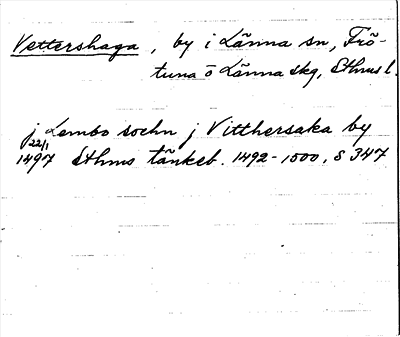 Vettershaga, by i Länna sn, Frö-
tuna o Länna skg, Sthms l.
j Lembo sochn j Vitthersaka by
22/1 1497 Sthms tänkeb. 1492-1500, s 347